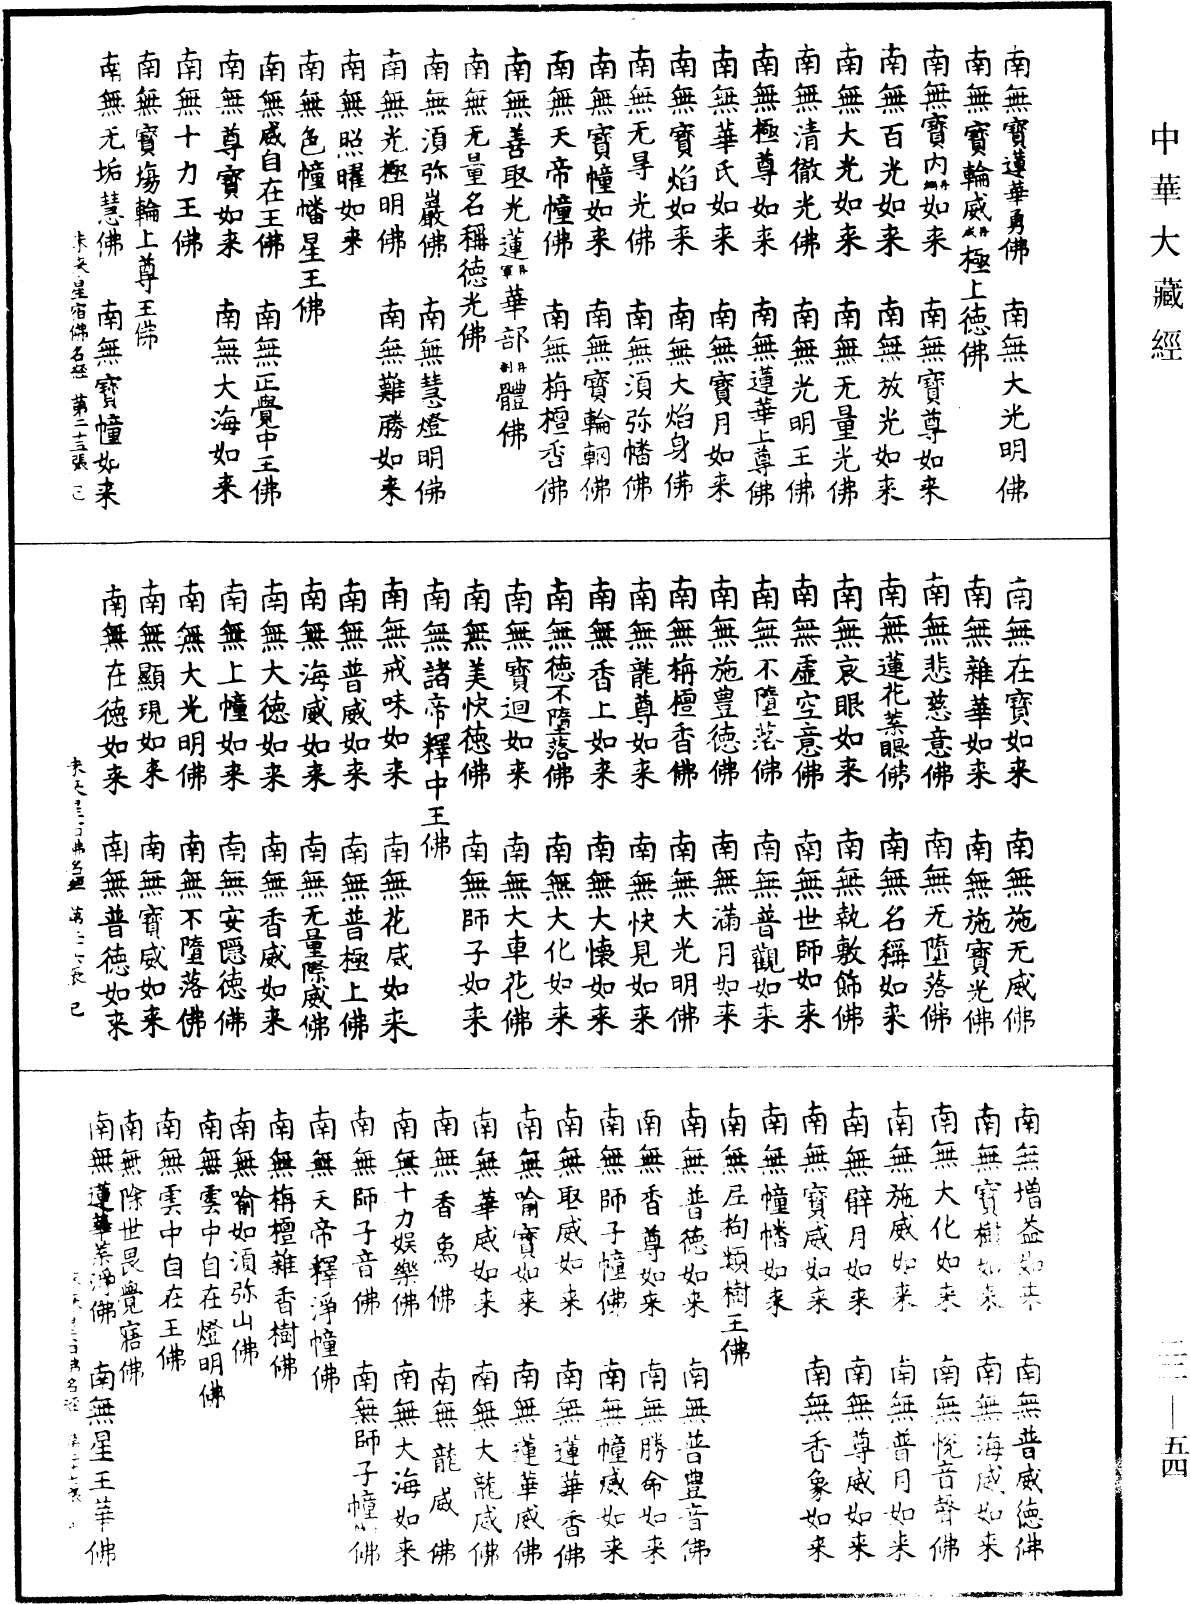 中華大藏經
南無寶蓮華勇佛　南無大光明佛
南無寶輪威丹咸極上德佛
南無寶內丹網如来　南無寶尊如来
南無百光如来　南無放光如来
南無大光如来　南無无量光佛
南無清徹光佛　南無光明王佛
南無極尊如来　南無蓮華上尊佛
南無華氏如来　南無寶月如来
南無寶焰如来　南無大焰身佛
南無无㝵光佛　南無須弥幡佛
南無寶幢如来　南無寶輪輞佛
南無天帝幢佛　南無栴檀香佛
南無善取光蓮丹軍華部丹剖體佛
南無无量名稱德光佛
南無須弥巖佛　南無慧燈明佛
南無光極明佛　南無難勝如来
南無照曜如来
南無色幢幡星王佛
南無威自在王佛　南無正覺中王佛
南無尊寶如来　南無大海如来
南無十力王佛
南無寶塲輪上尊王佛
南無无垢慧佛　南無寶幢如来
未来星宿佛名經　第二十五張　己
南無在寶如来　南無施无威佛
南無雜華如来　南無施寶光佛
南無悲慈意佛　南無无墮落佛
南無蓮花葉眼佛　南無名稱如来
南無哀眼如来　南無執敷飾佛
南無虛空意佛　南無世師如来
南無不墮落佛　南無普觀如来
南無施豊德佛　南無滿月如来
南無栴檀香佛　南無大光明佛
南無龍尊如来　南無快見如来
南無香上如来　南無大懷如来
南無德不墮落佛　南無大化如来
南無寶迴如来　南無大車花佛
南無美快德佛　南無師子如来
南無諸帝釋中王佛
南無戒味如来　南無花威如来
南無普威如来　南無普極上佛
南無海威如来　南無无量際威佛
南無大德如来　南無香威如来
南無上幢如来　南無安隱德佛
南無大光明佛　南無不墮落佛
南無顯現如来　南無寶威如来
南無在德如来　南無普德如来
南無增益如来　南無普威德佛
南無寶樹如来　南無海威如来
南無大化如来　南無悅音聲佛
南無施威如来　南無普月如来
南無辟月如来　南無尊威如来
南無寶威如来　南無香象如来
南無幢幡如来
南無尼拘類樹王佛
南無普德如来　南無普豊音佛
南無香尊如来　南無勝命如来
南無師子幢佛　南無幢威如来
南無取威如来　南無蓮華香佛
南無喻寶如来　南無蓮華威佛
南無華威如来　南無大龍威佛
南無香象佛　南無龍威佛
南無十力娛樂佛　南無大海如来
南無師子音佛　南無師子幢佛
南無天帝釋淨幢佛
南無栴檀雜香樹佛
南無喻如須弥山佛
南無雲中自在燈明佛
南無雲中自在王佛
南無除世畏覺寤佛
南無蓮華葉淨佛　南無星王華佛
二二—五四